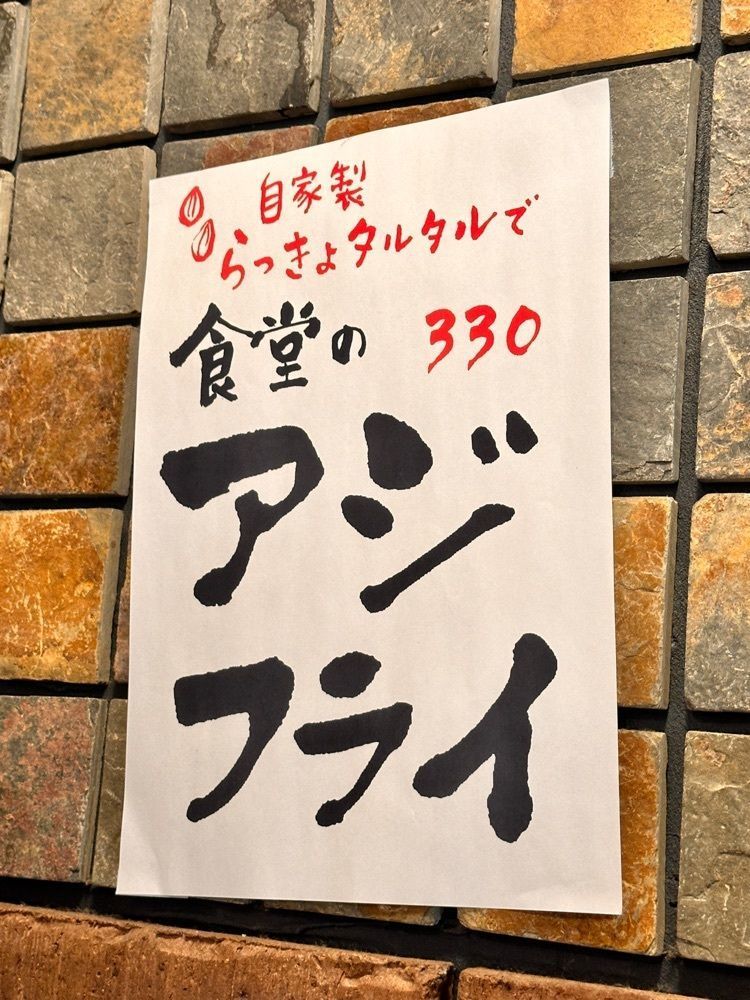 自家製
らっきょタルタルで
食堂の 330
アジ
フライ